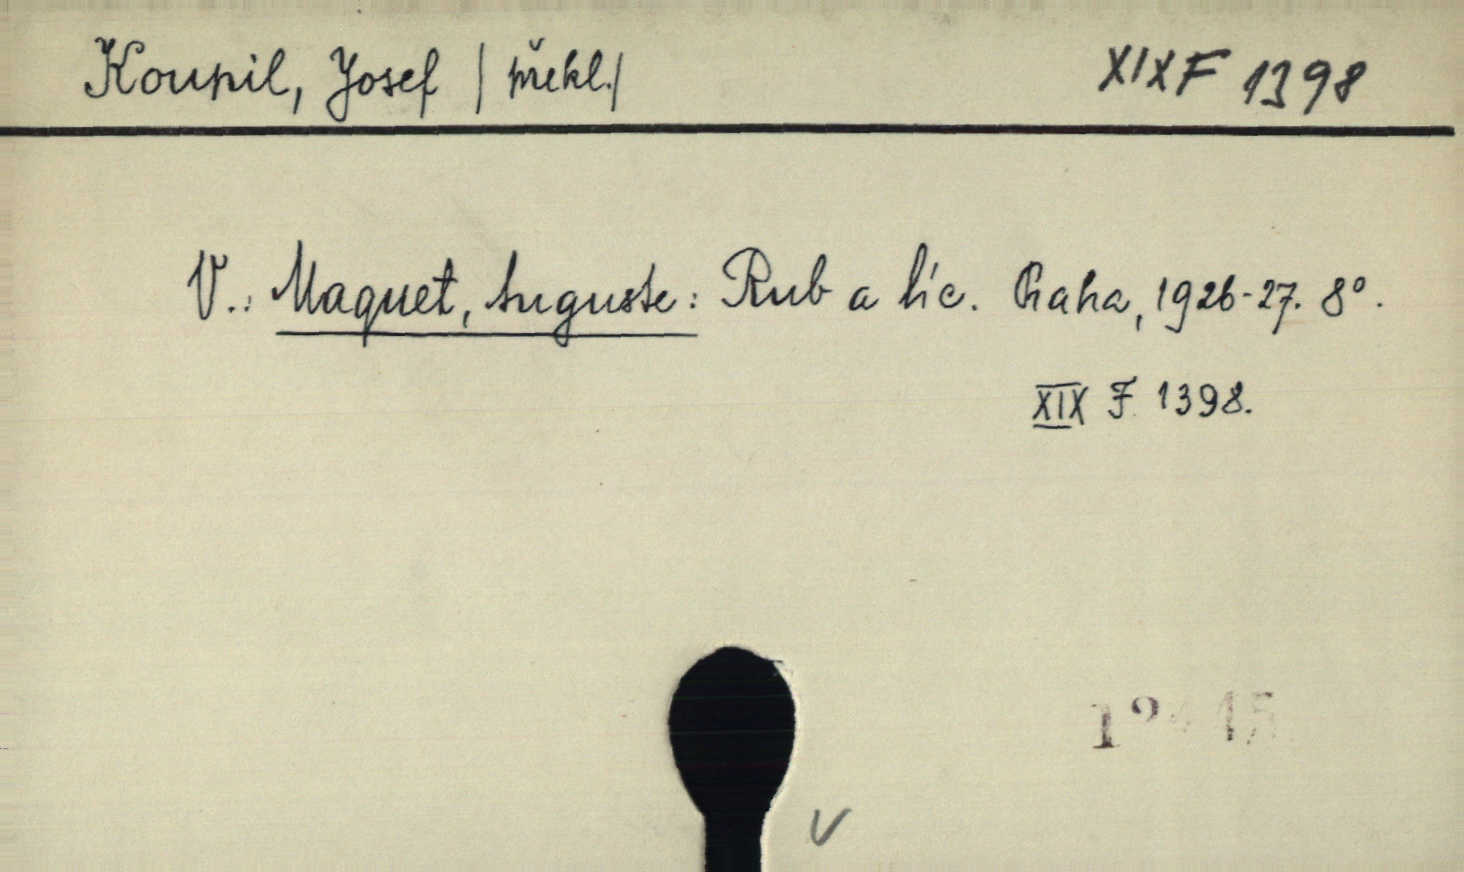 Koupil, Josef /překl./ XIX F 1398
V.: Maquet, Auguste: Rub a líc. Praha, 1926-27. 8°.
XIX F 1398.
V